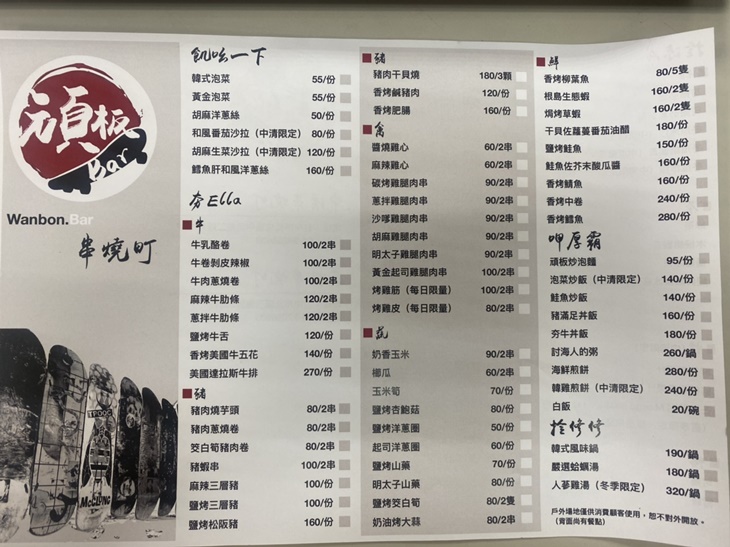 頑板
Bar
Wanbon.Bar
串燒町
飢吆一下
韓式泡菜 55/份
黃金泡菜 55/份
胡麻洋蔥絲 50/份
和風番茄沙拉（中清限定） 80/份
胡麻生菜沙拉（中清限定） 120/份
鱈魚肝和風洋蔥絲 160/份
夯Ella
牛
牛乳酪卷 100/2串
牛卷剝皮辣椒 100/2串
牛肉蔥燒卷 100/2串
麻辣牛肋條 120/2串
蔥拌牛肋條 120/2串
鹽烤牛舌 120/份
香烤美國牛五花 140/份
美國達拉斯牛排 270/份
豬
豬肉燒芋頭 80/2串
豬肉蔥燒卷 80/2串
筊白筍豬肉卷 80/2串
豬蝦串 100/2串
麻辣三層豬 100/份
鹽烤三層豬 100/份
鹽烤松阪豬 160/份
豬
豬肉干貝燒 180/3顆
香烤鹹豬肉 120/份
香烤肥腸 160/份
禽
醬燒雞心 60/2串
麻辣雞心 60/2串
碳烤雞腿肉串 90/2串
蔥拌雞腿肉串 90/2串
沙嗲雞腿肉串 90/2串
胡麻雞腿肉串 90/2串
明太子雞腿肉串 90/2串
黃金起司雞腿肉串 100/2串
烤雞筋（每日限量） 100/2串
烤雞皮（每日限量） 80/2串
蔬
奶香玉米 90/2串
櫛瓜 60/2串
玉米筍 70/份
鹽烤杏鮑菇 80/份
鹽烤洋蔥圈 50/份
起司洋蔥圈 60/份
鹽烤山藥 70/份
明太子山藥 80/份
鹽烤筊白筍 80/2隻
奶油烤大蒜 80/2串
鮮
香烤柳葉魚 80/5隻
根島生態蝦 160/2隻
焗烤草蝦 160/2隻
干貝佐蘿蔓番茄油醋 180/份
鹽烤鮭魚 150/份
鮭魚佐芥末酸瓜醬 160/份
香烤鯖魚 160/份
香烤中卷 240/份
香烤鱈魚 280/份
呷厚霸
頑板炒泡麵 95/份
泡菜炒飯（中清限定） 140/份
鮭魚炒飯 140/份
豬滿足丼飯 160/份
夯牛丼飯 180/份
討海人的粥 260/鍋
海鮮煎餅 280/份
韓雞煎餅（中清限定） 240/份
白飯 20/碗
拾修修
韓式風味鍋 190/鍋
嚴選蛤蠣湯 180/鍋
人蔘雞湯（冬季限定） 320/鍋
戶外場地僅供消費顧客使用，恕不對外開放。
（背面尚有餐點）